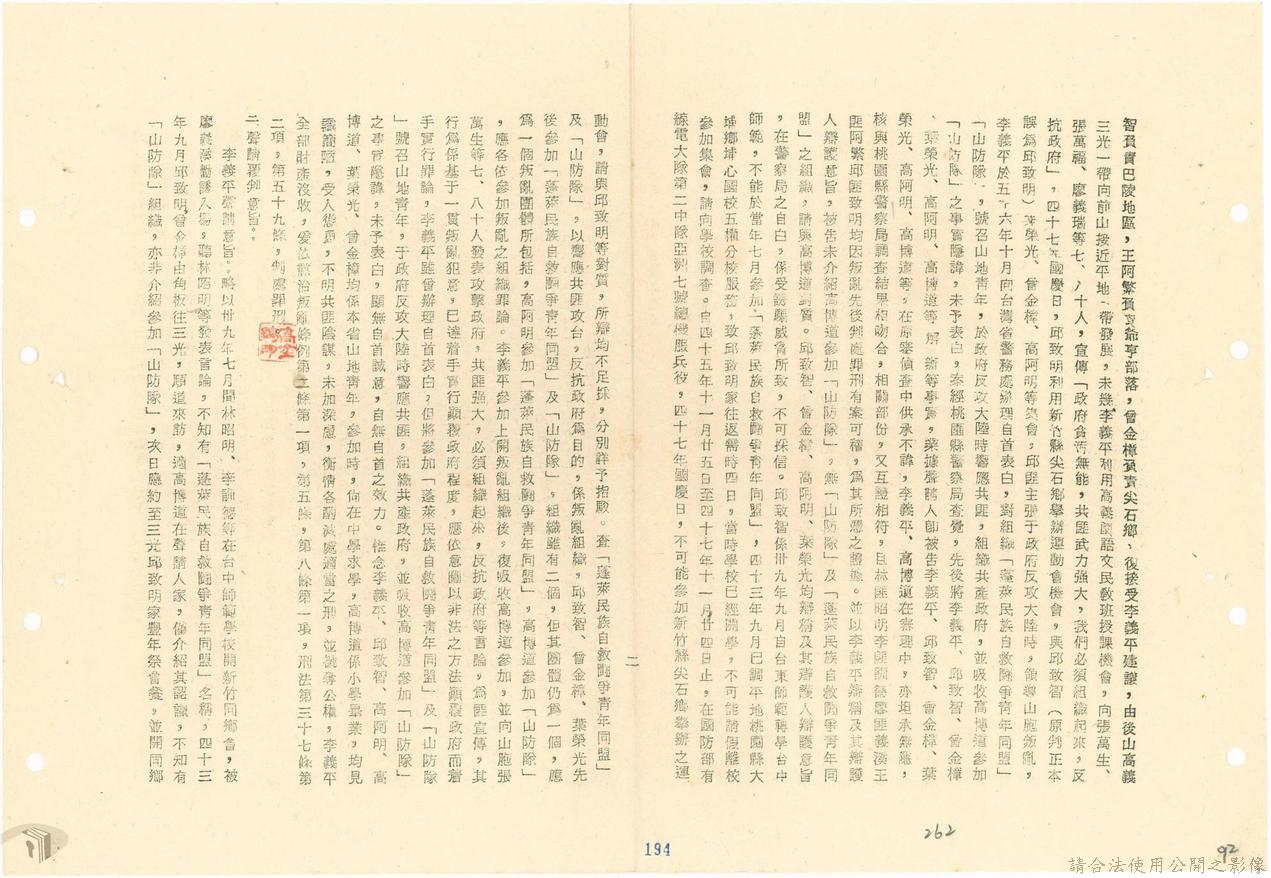 智負責巴陵地區，王阿繁負責爺亨部落，曾金樟負責尖石鄉，復接受李義平建議，由後山高義
三光一帶向前山接近平地一帶發展，未幾李義平利用高義國語文民教班授課機會，向張萬生、
張萬福、廖義瑞等七、八十人，宣傳「政府貪汚無能，共匪武力強大，我們必須組織起來，反
抗政府」，四十七年國慶日，邱致明利用新竹縣尖石鄉舉辦運動會機會，與邱致智（原判正本
誤爲邱致明）葉榮光、曾金樟、高阿明等集會，邱匪主張于政府反攻大陸時，領導山胞叛亂，
李義平於五十六年十月向台灣省警務處辦理自首表白，對組織「蓬萊民族自救鬪爭青年同盟」
「山防隊」，號召山地青年，於政府反攻大陸時響應共匪，組織共產政府，並吸收高博道參加
「山防隊」之事實隱諱，未予表白，案經桃園縣警察局查覺，先後將李義平、邱致智、曾金樟
、葉榮光、高阿明、高博道等 解 辦等事實，業據聲請人卽被告李義平、邱致智、曾金樟、葉
榮光、高阿明、高博道等，在原審偵查中供承不諱，李義平、高博道在審理中，亦坦承無隱，
核與桃園縣警察局調查結果相吻合，相關部份，又互證相符，且林匪昭明李匪訓德廖匪義溪王
匪阿繁邱匪致明均因叛亂先後判處罪刑有案可稽，爲其所憑之證據。並以李義平辯稱及其辯護
人辯護意旨，被告未介紹高博道參加「山防隊」，無「山防隊」及「蓬萊民族自救鬪爭青年同
盟」之組織，請與高博道對質。邱致智、曾金樟、高阿明、葉榮光均辯稱及其辯護人辯護意旨
，在警察局之自白，係受誘騙威脅所致，不可採信。邱致智係卅九年九月自台東師範轉學台中
師範，不能於當年七月參加「蓬萊民族自救鬪爭青年同盟」，四十三年九月已調平地桃園縣大
埔鄉埔心國校五權分校服務，致邱致明家往返需時四日，當時學校已經開學，不可能請假離校
參加集會，請向學校調查。自四十五年十一月廿五日至四十七年十一月廿四日止，在國防部有
線電大隊第二中隊亞洲七號總機服兵役，四十七年國慶日，不可能參加新竹縣尖石鄉舉辦之運
二
動會，請與邱致明等對質，所辯均不足採，分別詳予指駁。查「蓬萊民族自救鬪爭青年同盟」
及「山防隊」，以響應共匪攻台，反抗政府爲目的，係叛亂組織，邱致智、曾金樟、葉榮光先
後參加「蓬萊民族自救鬪爭青年同盟」及「山防隊」，組織雖有二個，但其團體仍爲一個，應
爲一個叛亂團體所包括，高阿明參加「蓬萊民族自救鬪爭青年同盟」，高博道參加「山防隊」
，應各依參加叛亂之組織罪論。李義平參加上開叛亂組織後，復吸收高博道參加，並向山胞張
萬生等七、八十人發表攻擊政府，共匪強大，必須組織起來，反抗政府等言論，爲匪宣傳，其
行爲係基于一貫叛亂犯意，已達着手實行顚覆政府程度，應依意圖以非法之方法顚覆政府而着
手實行罪論，李義平雖曾辦理自首表白，但將參加「蓬萊民族自救鬪爭青年同盟」及「山防隊
」號召山地青年，于政府反攻大陸時響應共匪，組織共產政府，並吸收高博道參加「山防隊」
之事實隱諱，未予表白，顯無自首誠意，自無自首之效力。惟念李義平、邱致智、高阿明、高
博道、葉榮光、曾金樟均係本省山地青年，參加時，尙在中學求學，高博道係小學畢業，均見
識簡陋，受人慫恿，不明共匪陰謀，未加深慮，衡情各酌減處適當之刑，並褫奪公權，李義平
全部財產沒收，爰依懲治叛亂條例第二條第一項，第五條，第八條第一項，刑法第三十七條第
二項，第五十九條，判處罪刑。
二聲請覆判意旨。
李義平聲請意旨。略以卅九年七月間林昭明、李訓德等在台中師範學校開新竹同鄉會，被
廖義溪勸誘入場，聽林昭明等發表言論，不知有「蓬萊民族自救鬪爭青年同盟」名稱，四十三
年九月邱致明曾金樟由角板往三光，順道來訪，適高博道在聲請人家，僅介紹其認識，不知有
「山防隊」組織，亦非介紹參加「山防隊」，次日應約至三光邱致明家豐年祭會餐，並開同鄉
194
262
92
請合法使用公開之影像